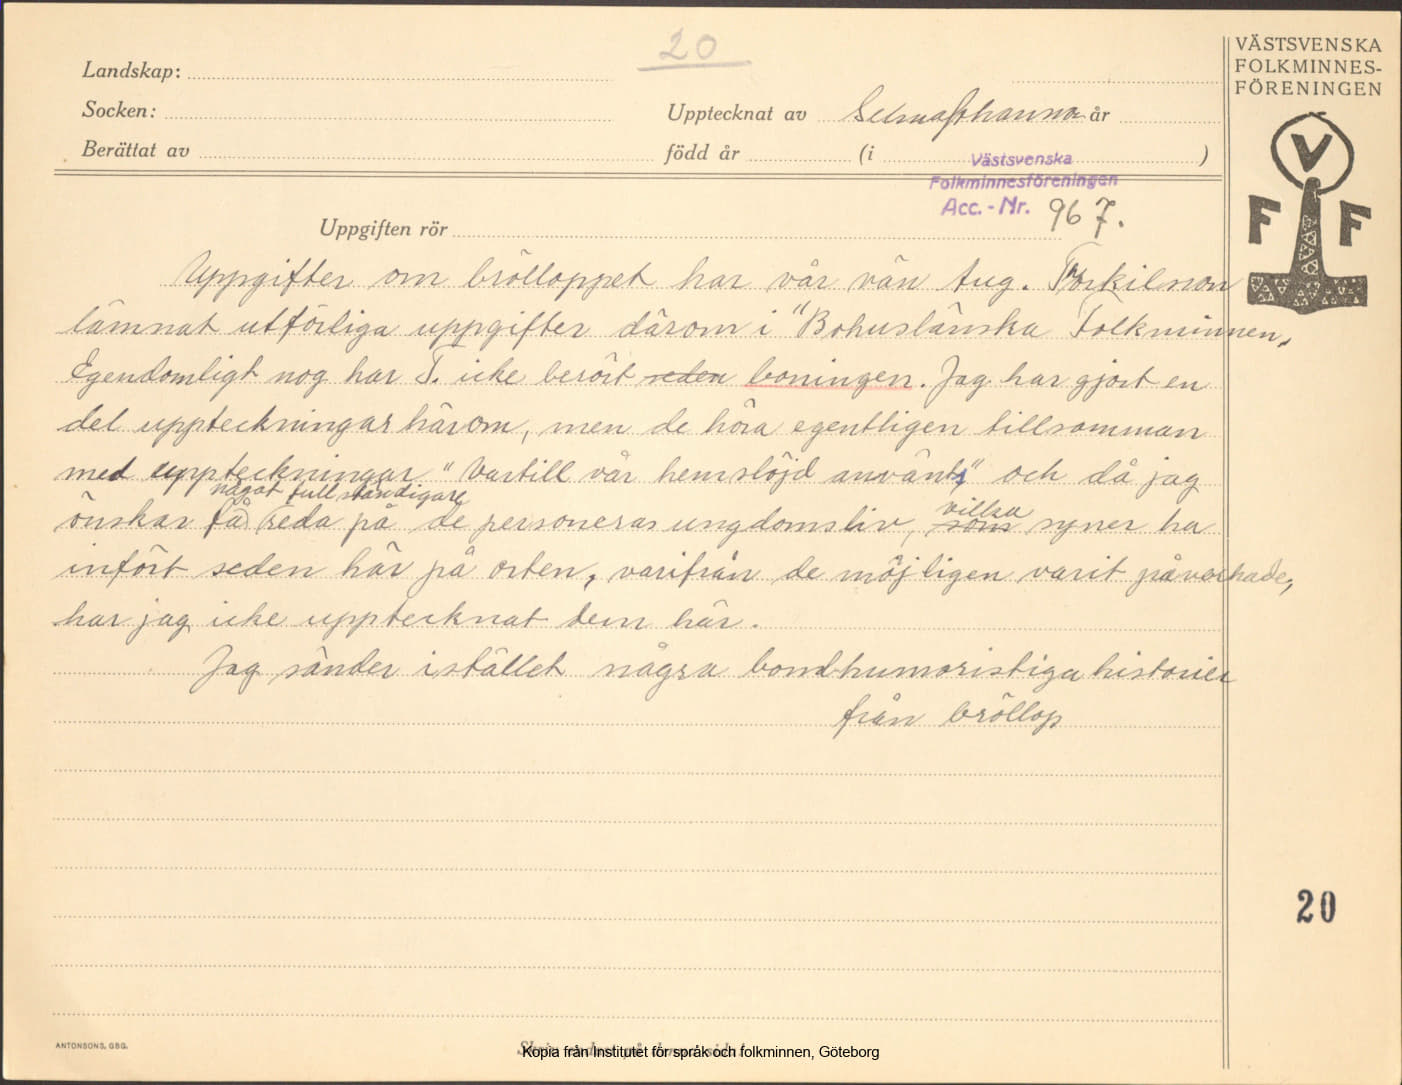 20
VÄSTSVENSKA
FOLKMINNES-
FÖRENINGEN
Landskap:
Socken:
Upptecknat av Selma Johanna år
Berättat av
född år (i )
Västsvenska
Folkminnesföreningen
Acc.-Nr. 967.
V
F F
Uppgiften rör
Uppgifter om brölloppet har vår vän Aug. Torkilsson
lämnat utförliga uppgifter därom i "Bohuslänska Folkminnen,
Egendomligt nog har T. icke berört seden boningen. Jag har gjort en
del uppteckningar härom, men de höra egentligen tillsamman
med uppteckningar "Vartill vår hemslöjd använts" och då jag
något fullständigare
önskar få reda på de personeras ungdomsliv, som vilka syner ha
infört seden här på orten, varifrån de möjligen varit påverkade,
har jag icke upptecknat dem här.
Jag sänder istället några bondhumoristiga historier
från bröllop
20
ANTONSONS, GBG.
Skriv endast på denna sida!
Kopia från Institutet för språk och folkminnen, Göteborg